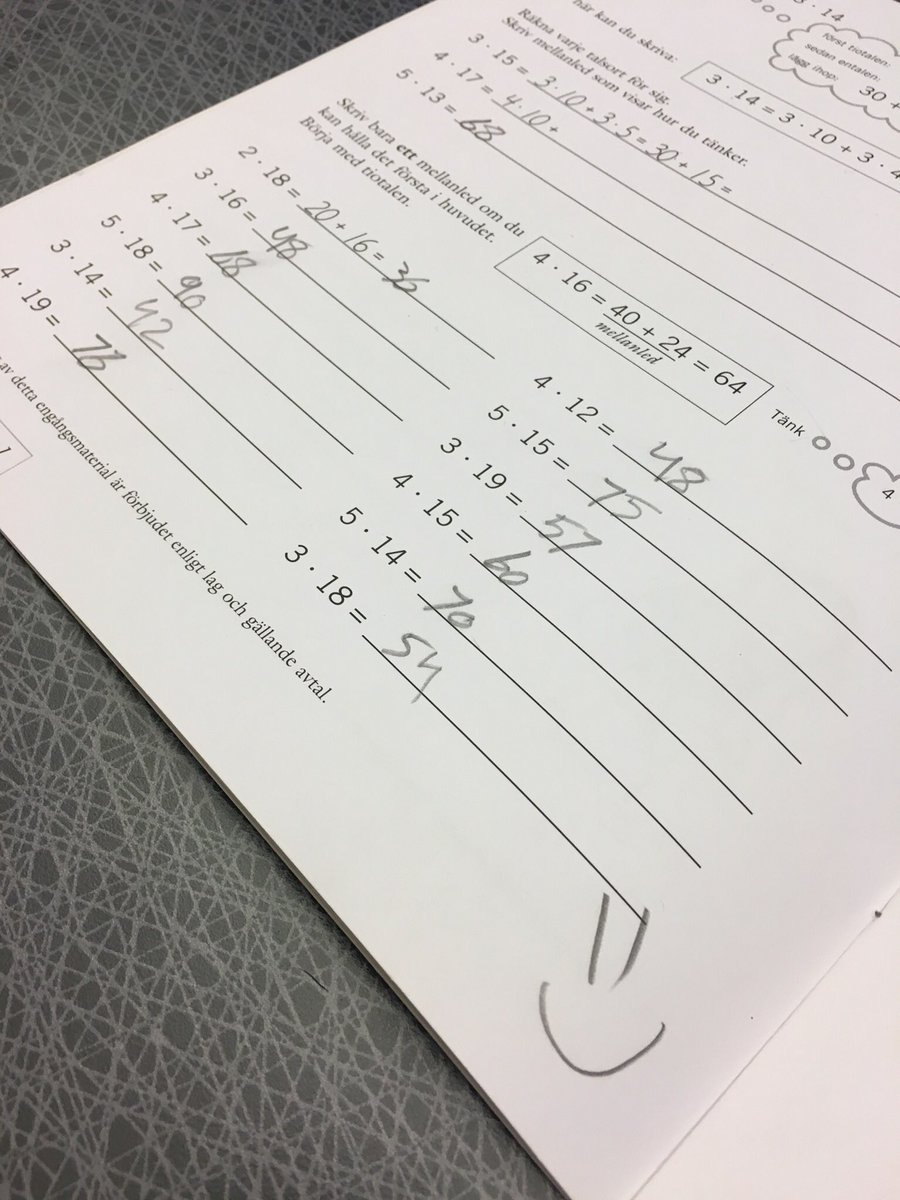 · 14
först tiotalen:
sedan entalen:
lägg ihop:
30 +
här kan du skriva:
3 · 14 = 3 · 10 + 3 · 4
Räkna varje talsort för sig.
Skriv mellanled som visar hur du tänker.
3 · 15 = 3·10 + 3·5 = 30 + 15 =
4 · 17 = 4·10 +
5 · 13 = 68
Skriv bara ett mellanled om du
kan hålla det första i huvudet.
Börja med tiotalen.
4 · 16 = 40 + 24 = 64
mellanled
Tänk
4
2 · 18 = 20 + 16 = 36
3 · 16 = 48
4 · 17 = 68
5 · 18 = 90
3 · 14 = 42
4 · 19 = 76
4 · 12 = 48
5 · 15 = 75
3 · 19 = 57
4 · 15 = 60
5 · 14 = 70
3 · 18 = 54
av detta engångsmaterial är förbjudet enligt lag och gällande avtal.